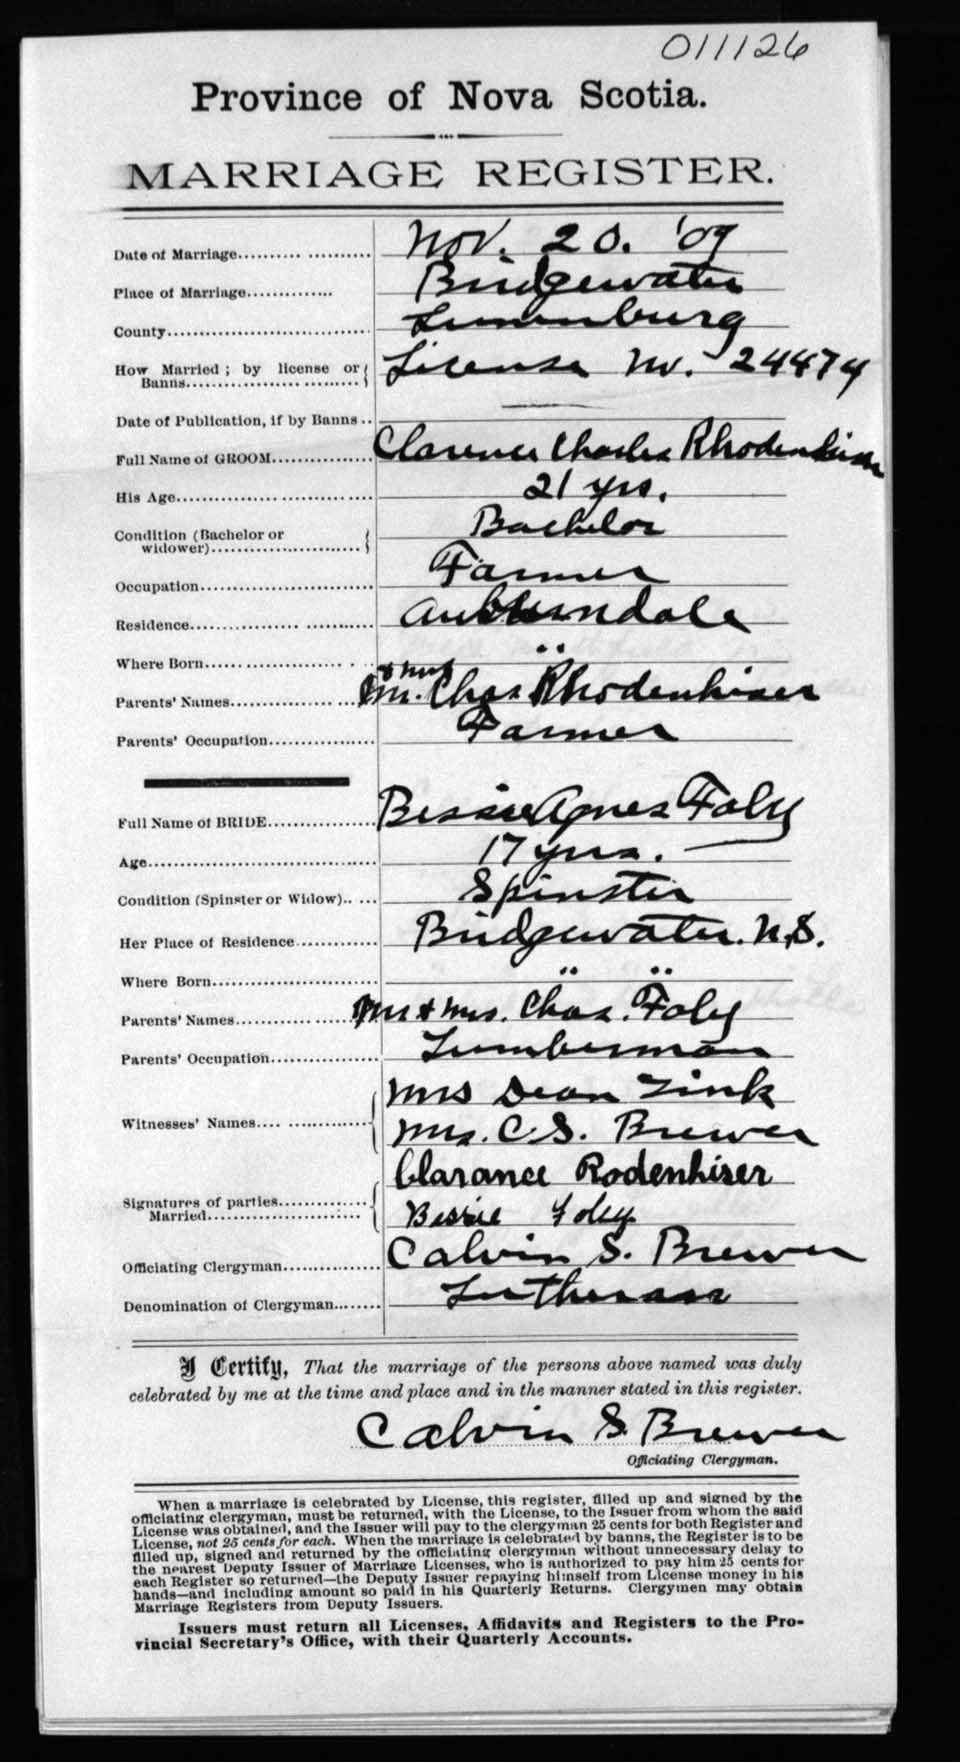 011126
Province of Nova Scotia.
MARRIAGE REGISTER.
Date of Marriage Nov. 20. '09
Place of Marriage Bridgewater
County Lunenburg
How Married; by license or Banns License No. 24474
Date of Publication, if by Banns —
Full Name of GROOM Clarence Charles Rhodenhiser
His Age 21 yrs.
Condition (Bachelor or widower) Bachelor
Occupation Farmer
Residence Auburndale
Where Born "
Parents' Names Mr. & Mrs Chas Rhodenhiser
Parents' Occupation Farmer
Full Name of BRIDE Bessie Agnes Foley
Age 17 yrs.
Condition (Spinster or Widow) Spinster
Her Place of Residence Bridgewater. N.S.
Where Born " "
Parents' Names Mr & Mrs. Chas. Foley
Parents' Occupation Lumberman
Witnesses' Names Mrs Dean Zink
Mrs. C. S. Brewer
Signatures of parties Married Clarance Rodenhiser
Bessie Foley
Officiating Clergyman Calvin S. Brewer
Denomination of Clergyman Lutheran
I Certify, That the marriage of the persons above named was duly
celebrated by me at the time and place and in the manner stated in this register.
Calvin S. Brewer
Officiating Clergyman.
When a marriage is celebrated by License, this register, filled up and signed by the
officiating clergyman, must be returned, with the License, to the Issuer from whom the said
License was obtained, and the Issuer will pay to the clergyman 25 cents for both Register and
License, not 25 cents for each. When the marriage is celebrated by banns, the Register is to be
filled up, signed and returned by the officiating clergyman without unnecessary delay to
the nearest Deputy Issuer of Marriage Licenses, who is authorized to pay him 25 cents for
each Register so returned—the Deputy Issuer repaying himself from License money in his
hands—and including amount so paid in his Quarterly Returns. Clergymen may obtain
Marriage Registers from Deputy Issuers.
Issuers must return all Licenses, Affidavits and Registers to the Pro-
vincial Secretary's Office, with their Quarterly Accounts.